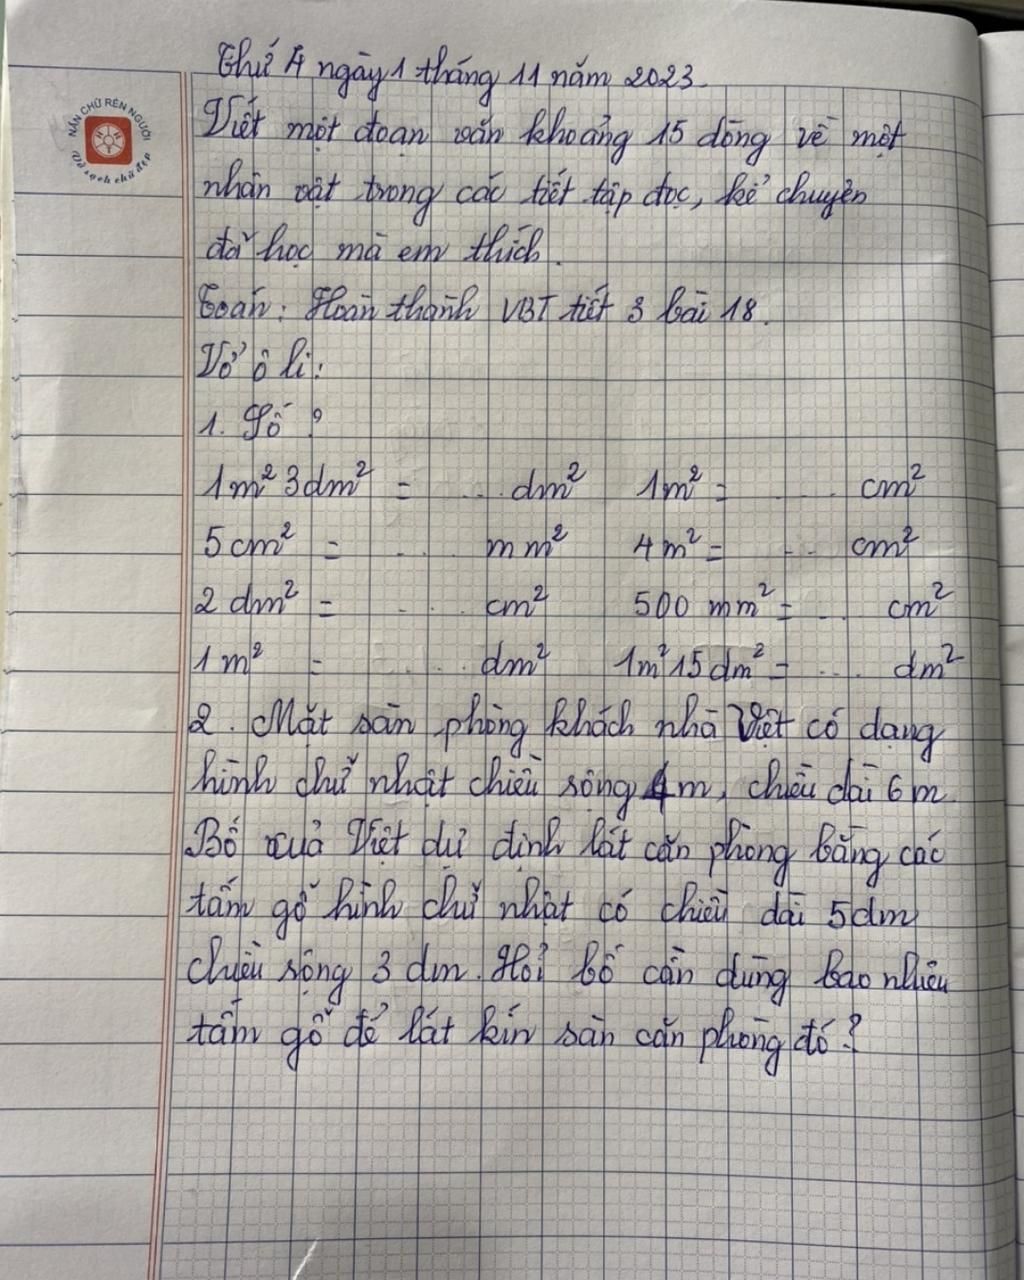 NẮN CHỮ RÈN NGƯỜI
Vở sạch chữ đẹp
Thứ 4 ngày 1 tháng 11 năm 2023
Viết một đoạn văn khoảng 15 dòng về một
nhân vật trong các tiết tập đọc, kể chuyện
đã học mà em thích.
Toán: Hoàn thành VBT tiết 3 bài 18.
Vở ô li:
1. Số ?
1m² 3dm² = ... dm² 1m² = ... cm²
5cm² = ... mm² 4m² = ... cm²
2 dm² = ... cm² 500 mm² = ... cm²
1m² = ... dm² 1m² 15dm² = ... dm²
2. Mặt sàn phòng khách nhà Việt có dạng
hình chữ nhật chiều rộng 4m, chiều dài 6m.
Bố của Việt dự định lát căn phòng bằng các
tấm gỗ hình chữ nhật có chiều dài 5dm
chiều rộng 3 dm. Hỏi bố cần dùng bao nhiêu
tấm gỗ để lát kín sàn căn phòng đó?